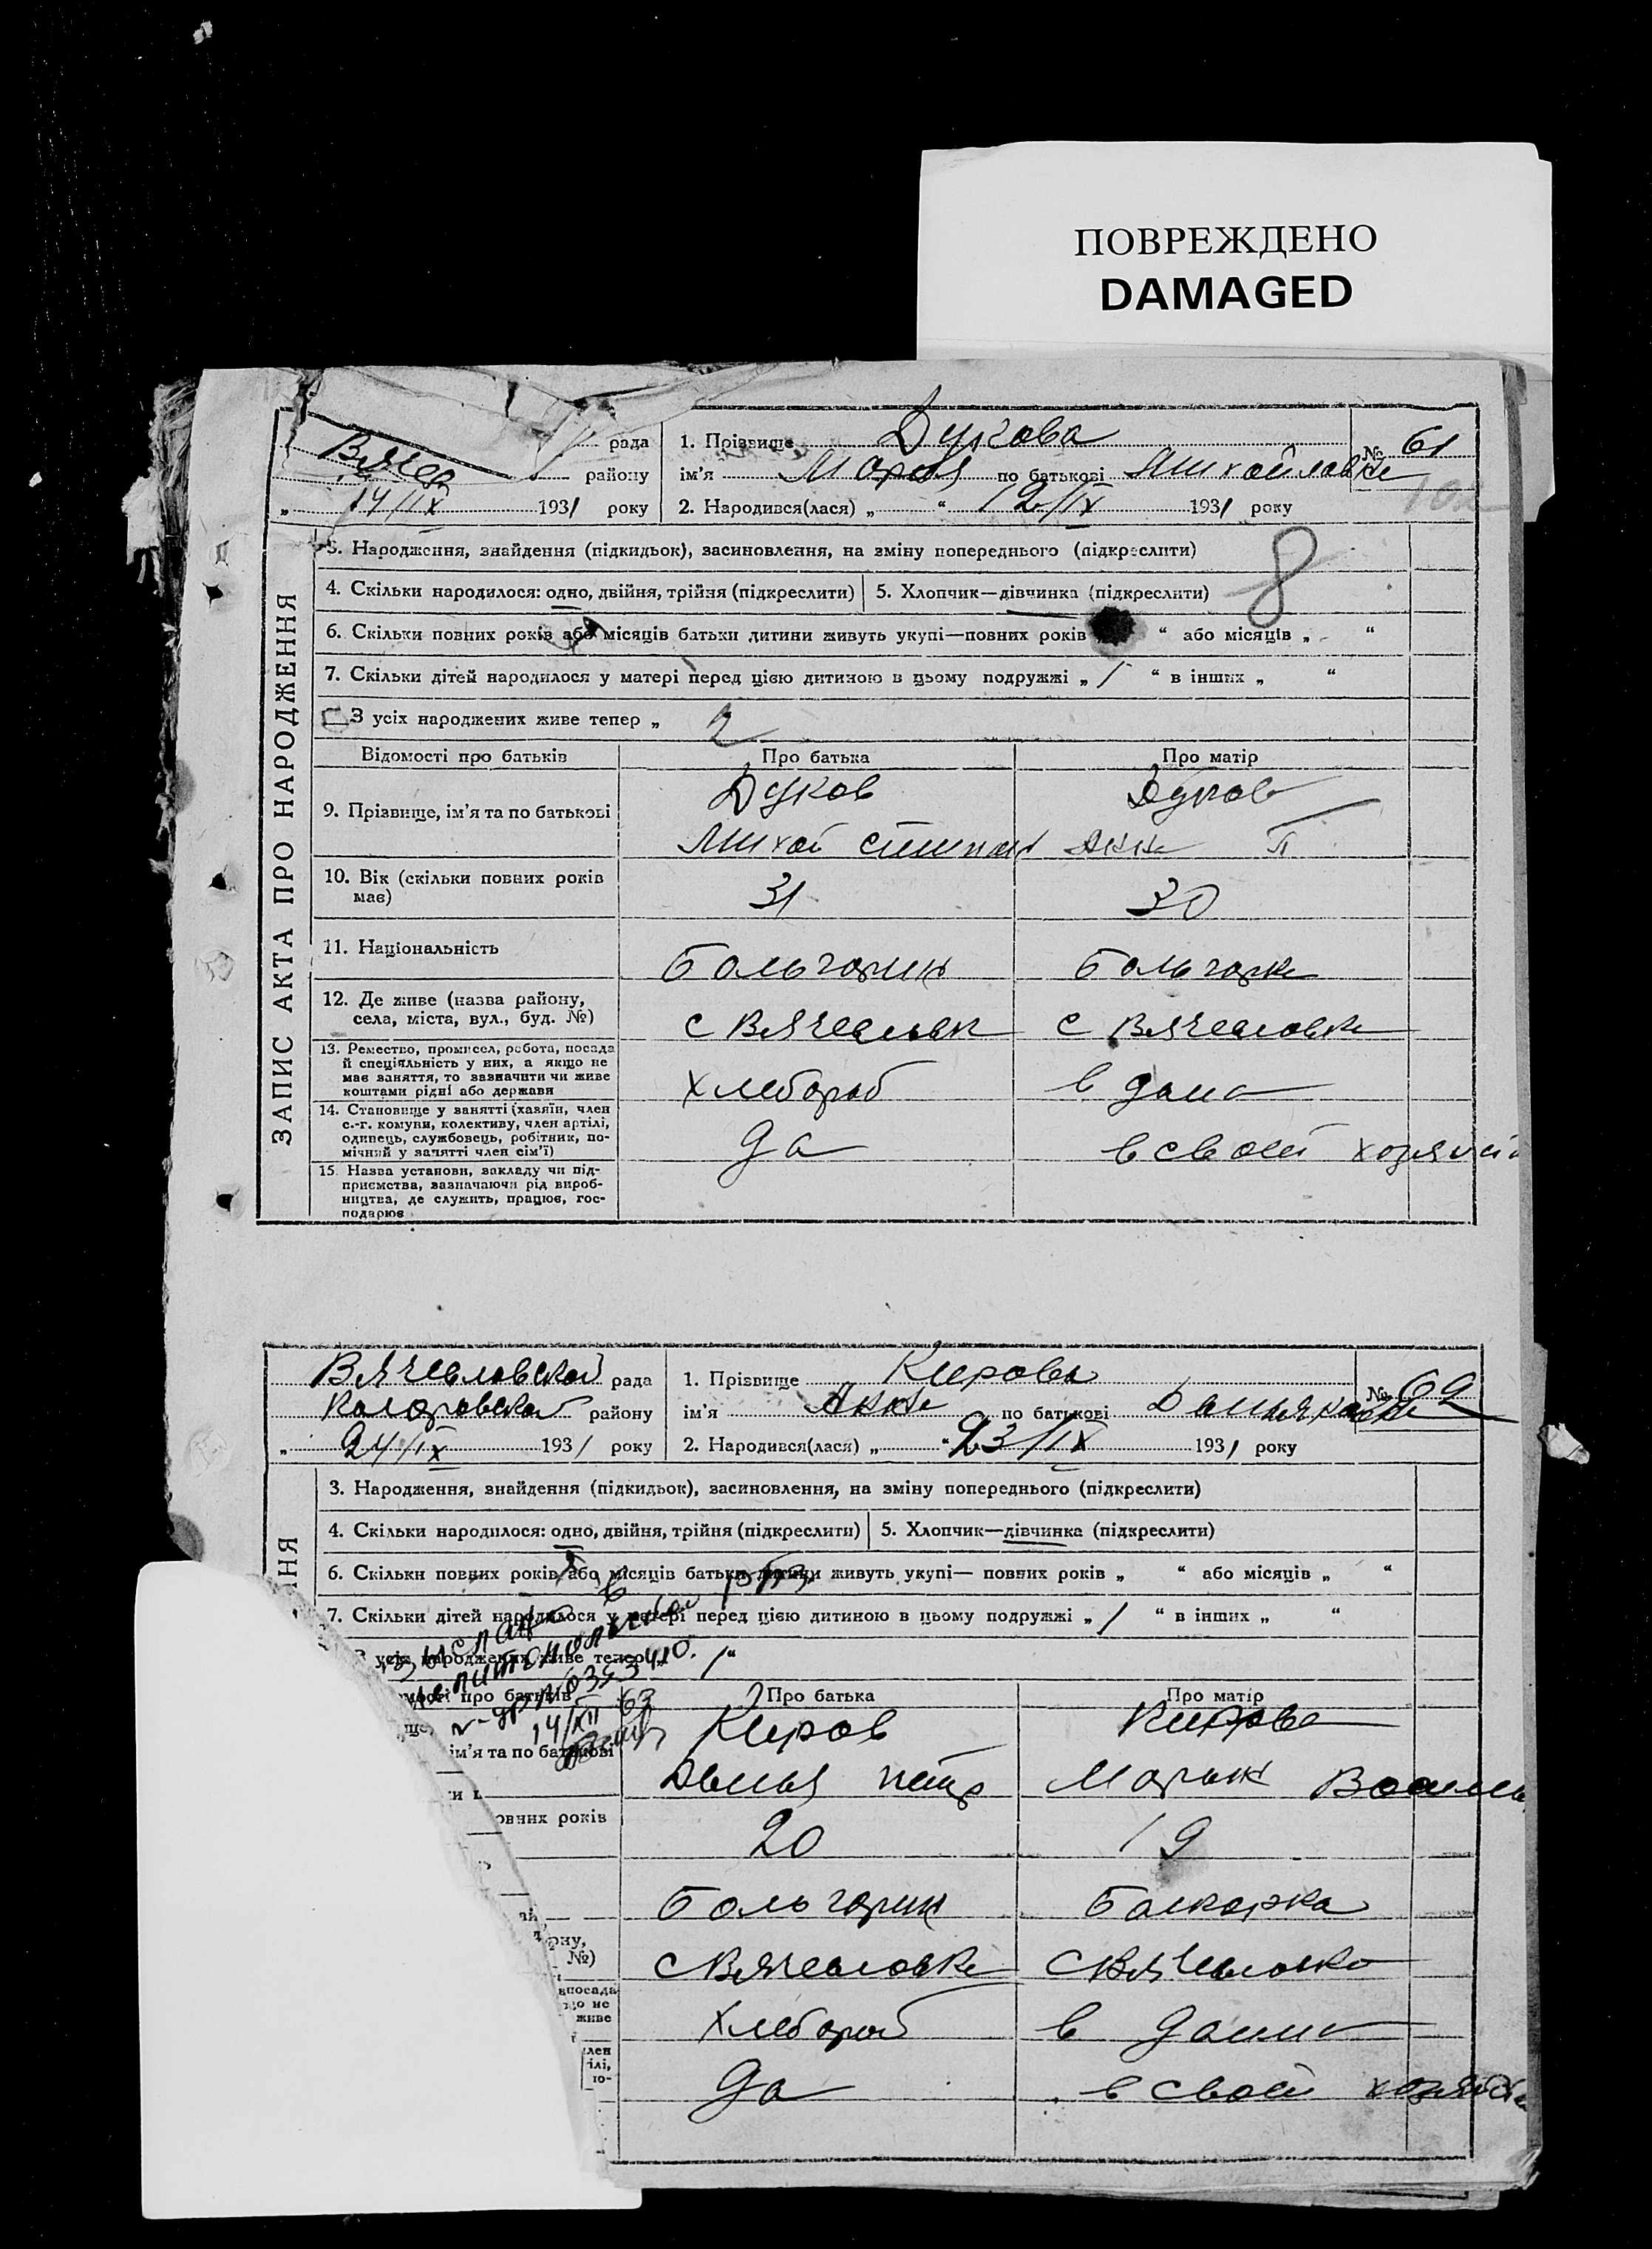 ПОВРЕЖДЕНО
DAMAGED
рада
району
„ 14/IX 1931 року
1. Прізвище Дукова
ім'я Мария по батькові Михайловна
№ 61
2. Народився(лася) „ “ 12/IX 1931 року
ЗАПИС АКТА ПРО НАРОДЖЕННЯ
3. Народження, знайдення (підкидьок), засиновлення, на зміну попереднього (підкреслити)
8
4. Скільки народилося: одно, двійня, трійня (підкреслити)
5. Хлопчик—дівчинка (підкреслити)
6. Скільки повних років або місяців батьки дитини живуть укупі—повних років “ або місяців „ “
7. Скільки дітей народилося у матері перед цією дитиною в цьому подружжі „ 1 “ в інших „ “
З усіх народжених живе тепер „ 2
Відомості про батьків Про батька Про матір
9. Прізвище, ім'я та по батькові
Дуков
Михаил
Анна П
10. Вік (скільки повних років має)
31 30
11. Національність
Больгарин Больгарка
12. Де живе (назва району, села, міста, вул., буд. №)
с Вячеславк с Вячеславка
13. Ремество, промисел, робота, посада й спеціяльність у них, а якщо не має заняття, то зазначити чи живе коштами рідні або держави
Хлебороб в доме
14. Становище у занятті (хазяїн, член с.-г. комуни, колективу, член артілі, одинець, службовець, робітник, помічний у занятті член сім'ї)
да в своей хозяйст
15. Назва установи, закладу чи підприємства, зазначаючи рід виробництва, де служить, працює, господарює
Вячеславской рада
Коларовской району
„ 24/IX 1931 року
1. Прізвище Кирова
ім'я Анна по батькові
№ 62
2. Народився(лася) „ “ 23/IX 1931 року
3. Народження, знайдення (підкидьок), засиновлення, на зміну попереднього (підкреслити)
4. Скільки народилося: одно, двійня, трійня (підкреслити)
5. Хлопчик—дівчинка (підкреслити)
6. Скільки повних років або місяців батьки дитини живуть укупі— повних років „ “ або місяців „ “
7. Скільки дітей народилося у матері перед цією дитиною в цьому подружжі „ 1 “ в інших „ “
З усіх народжених живе тепер 1 “
про батьків Про батька Про матір
14/XII 63
ім'я та по батькові
Киров Кирова
Петр
вних років
20 19
Больгарин Болкарка
№)
с Вячеславка с Вячеславка
посада
не
живе
Хлебороб в доми
да в своей хозяйств